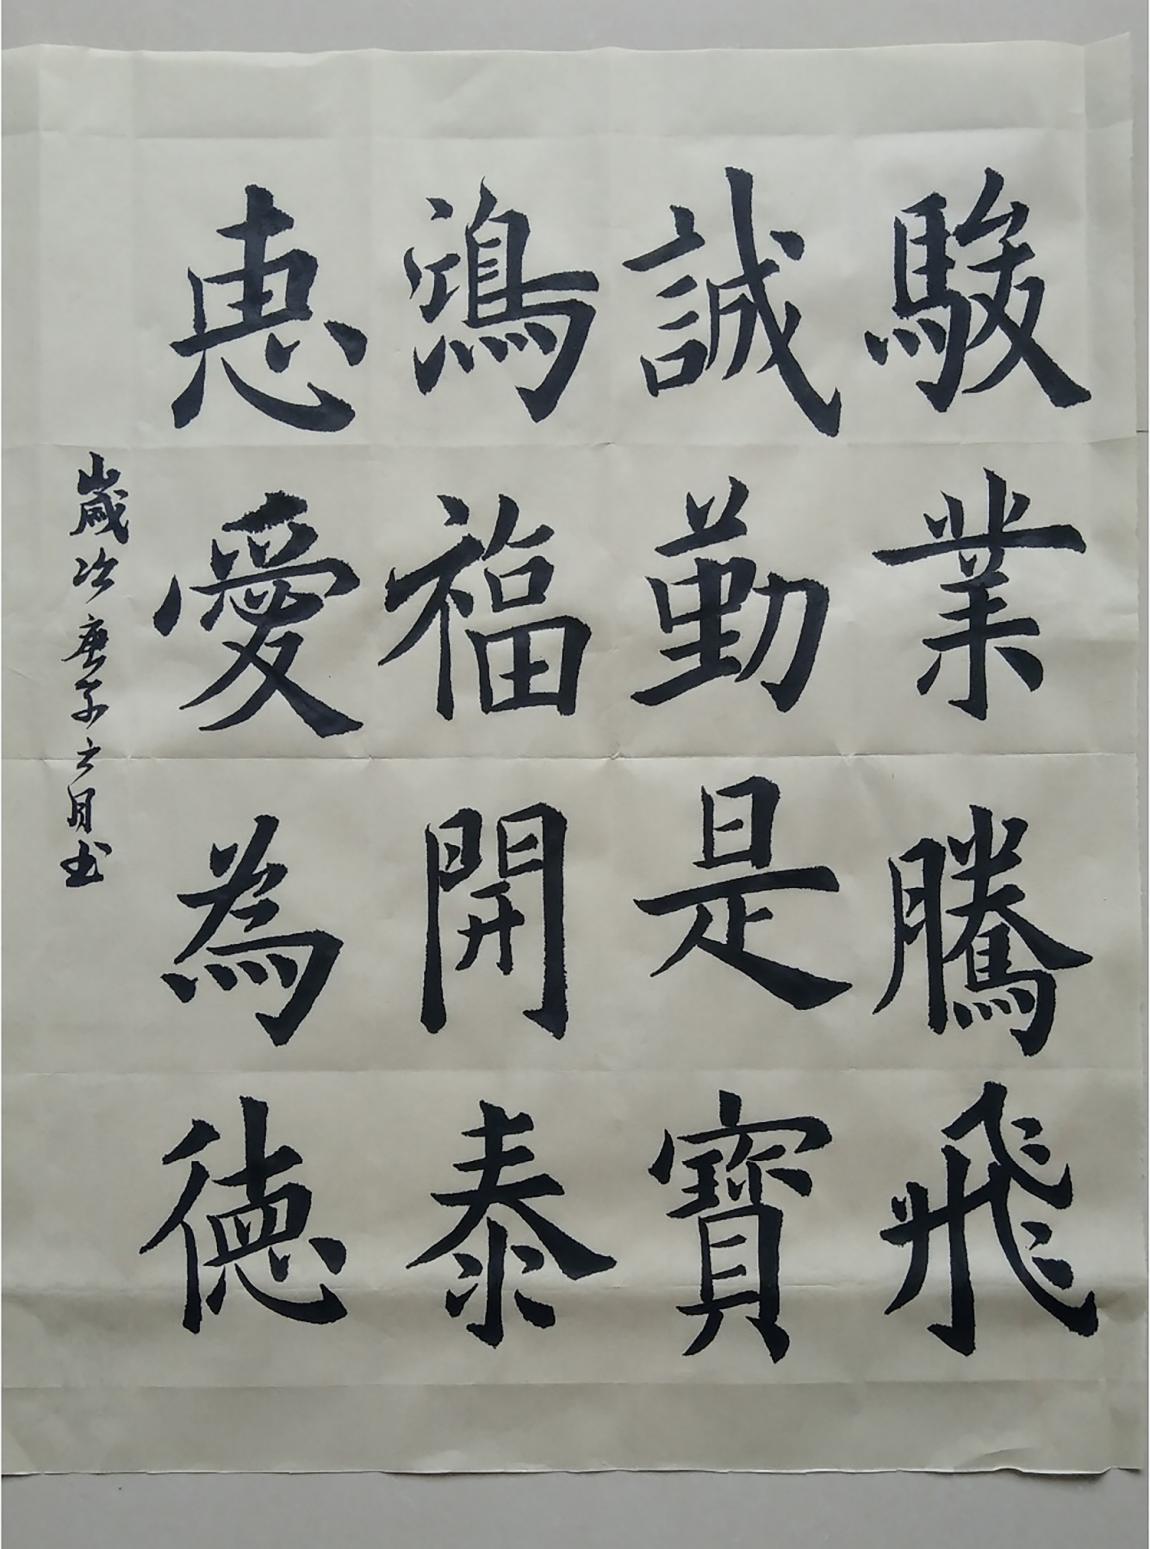 駿業騰飛
誠勤是寶
鴻福開泰
恵愛為徳
歲次庚子六月书